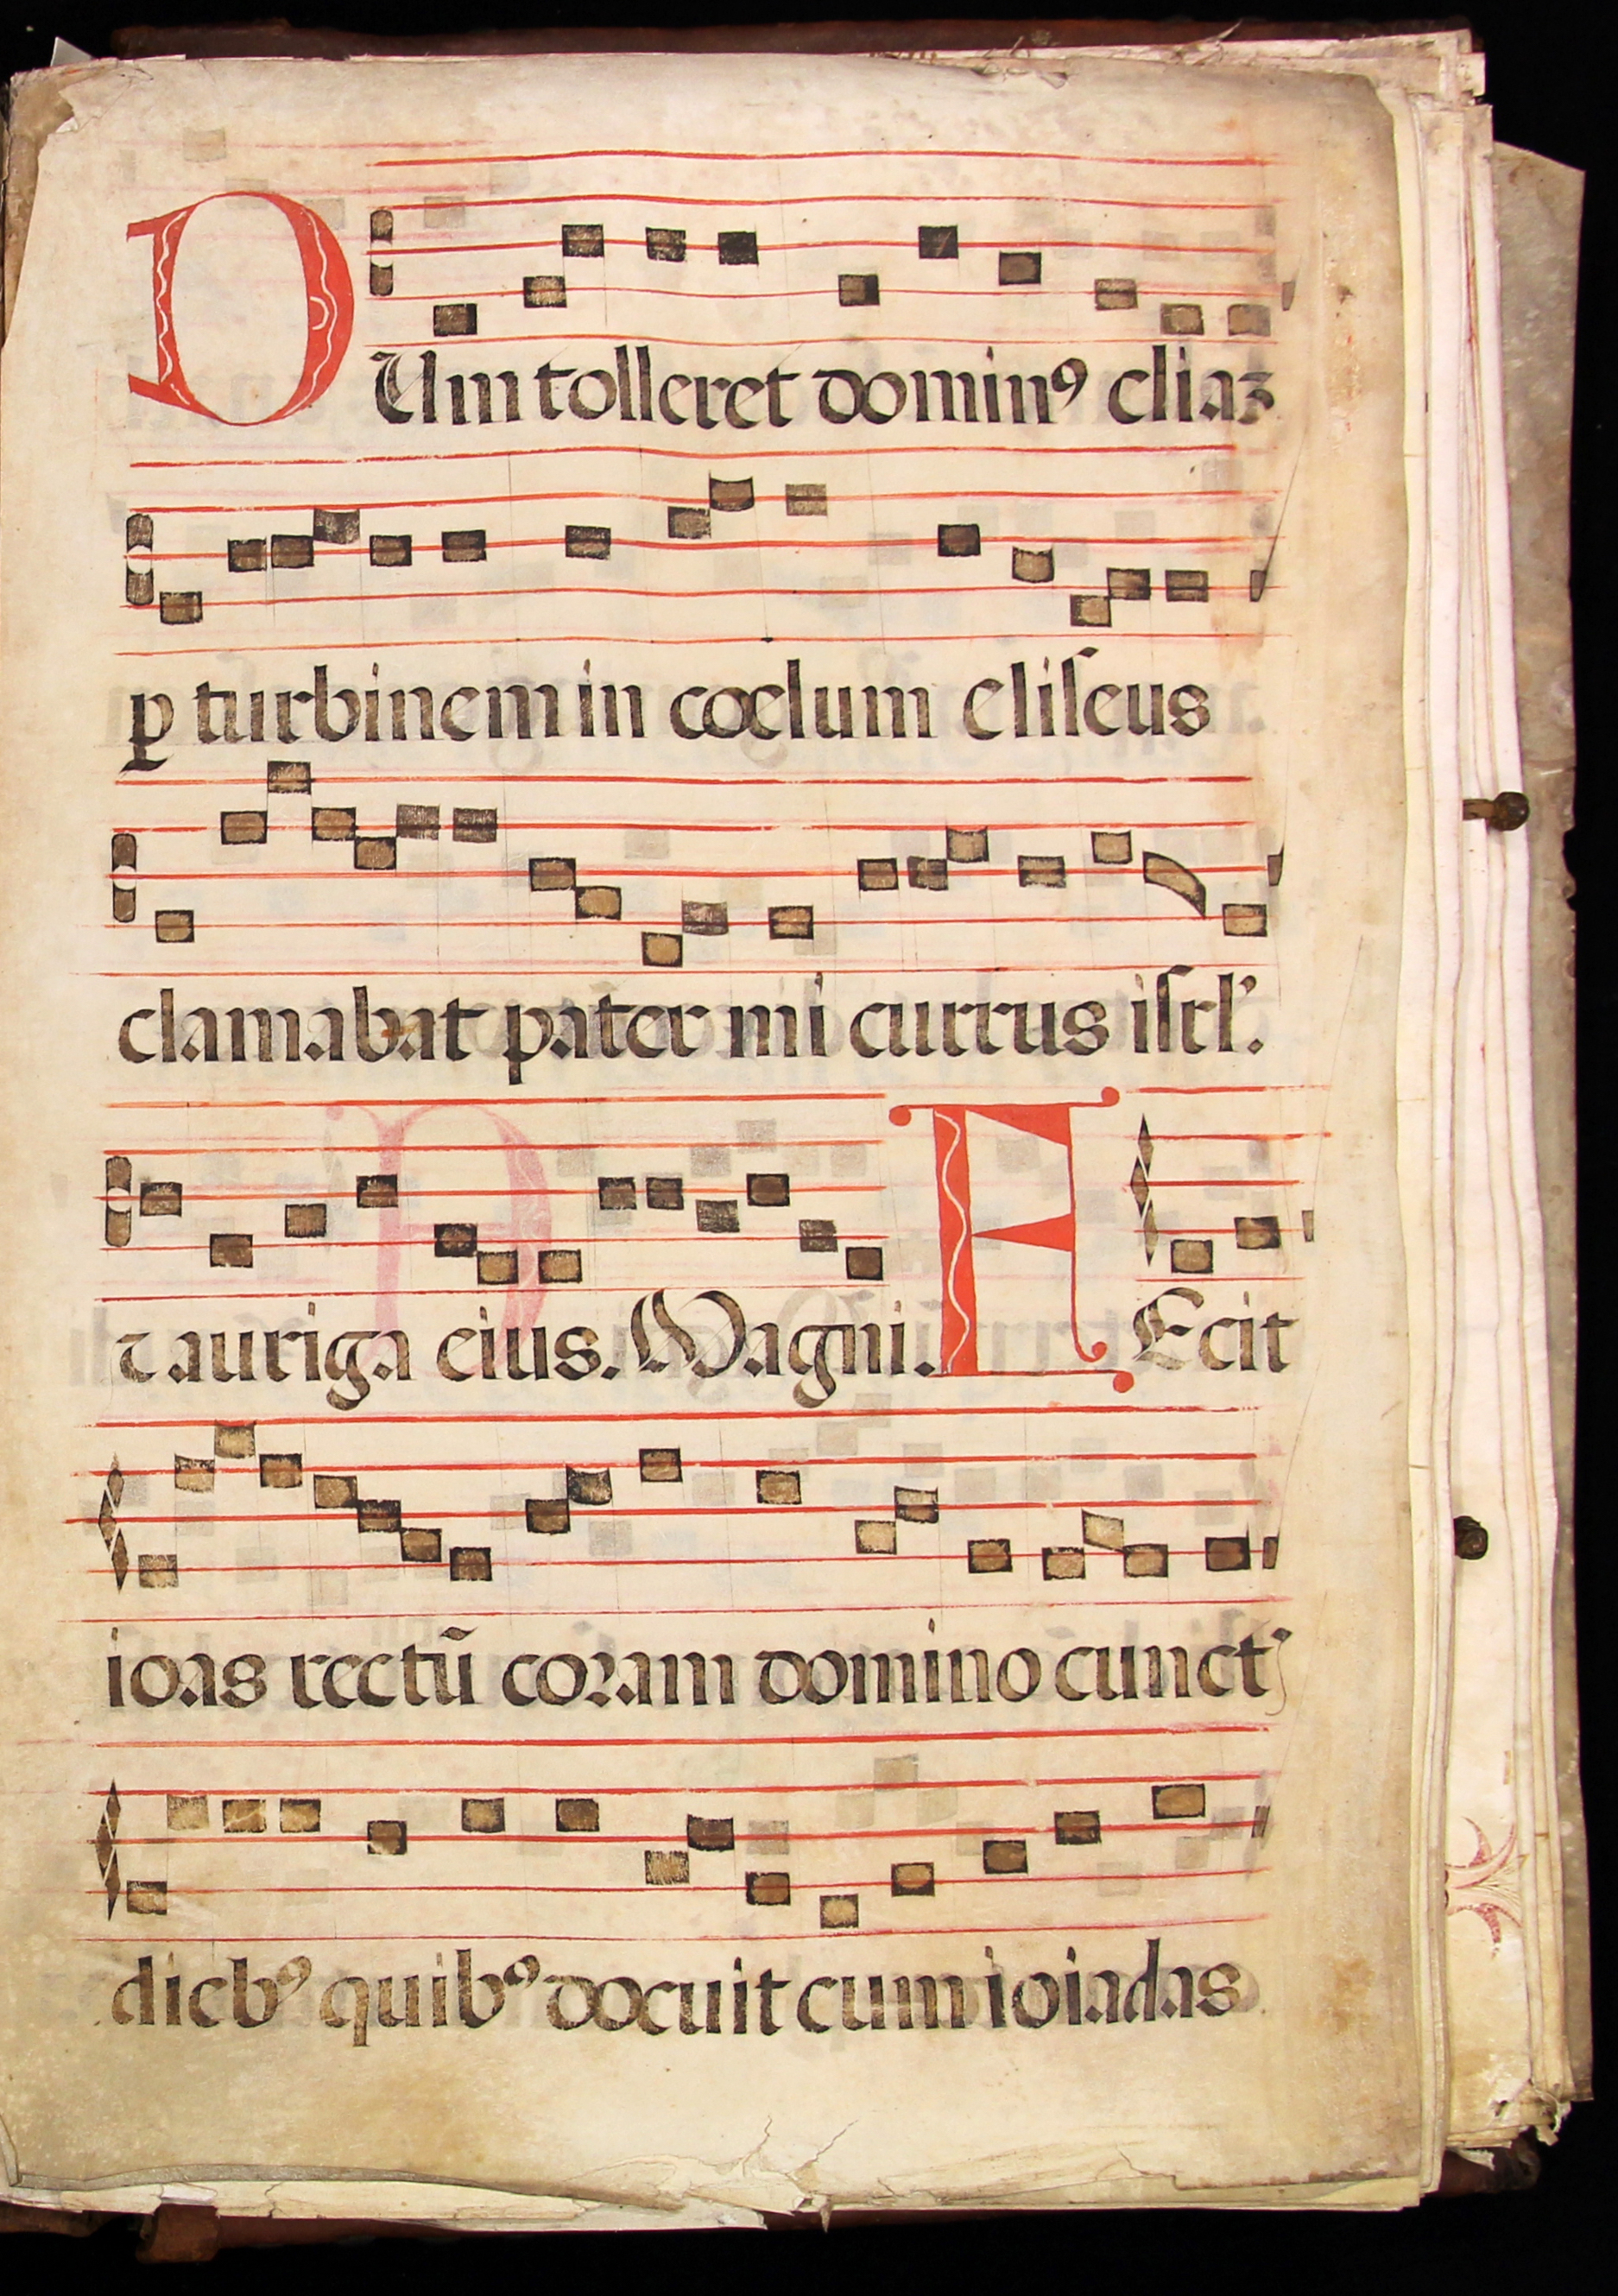 DUm tolleret dominꝯ eliaꝫ
ꝑ turbinem in coelum eliſeus
clamabat pater mi currus iſrl'.
⁊ auriga eius. Magni. FEcit
ioas rectū coꝛam domino cunct'
diebꝯ quibꝯ docuit cum ioiadas